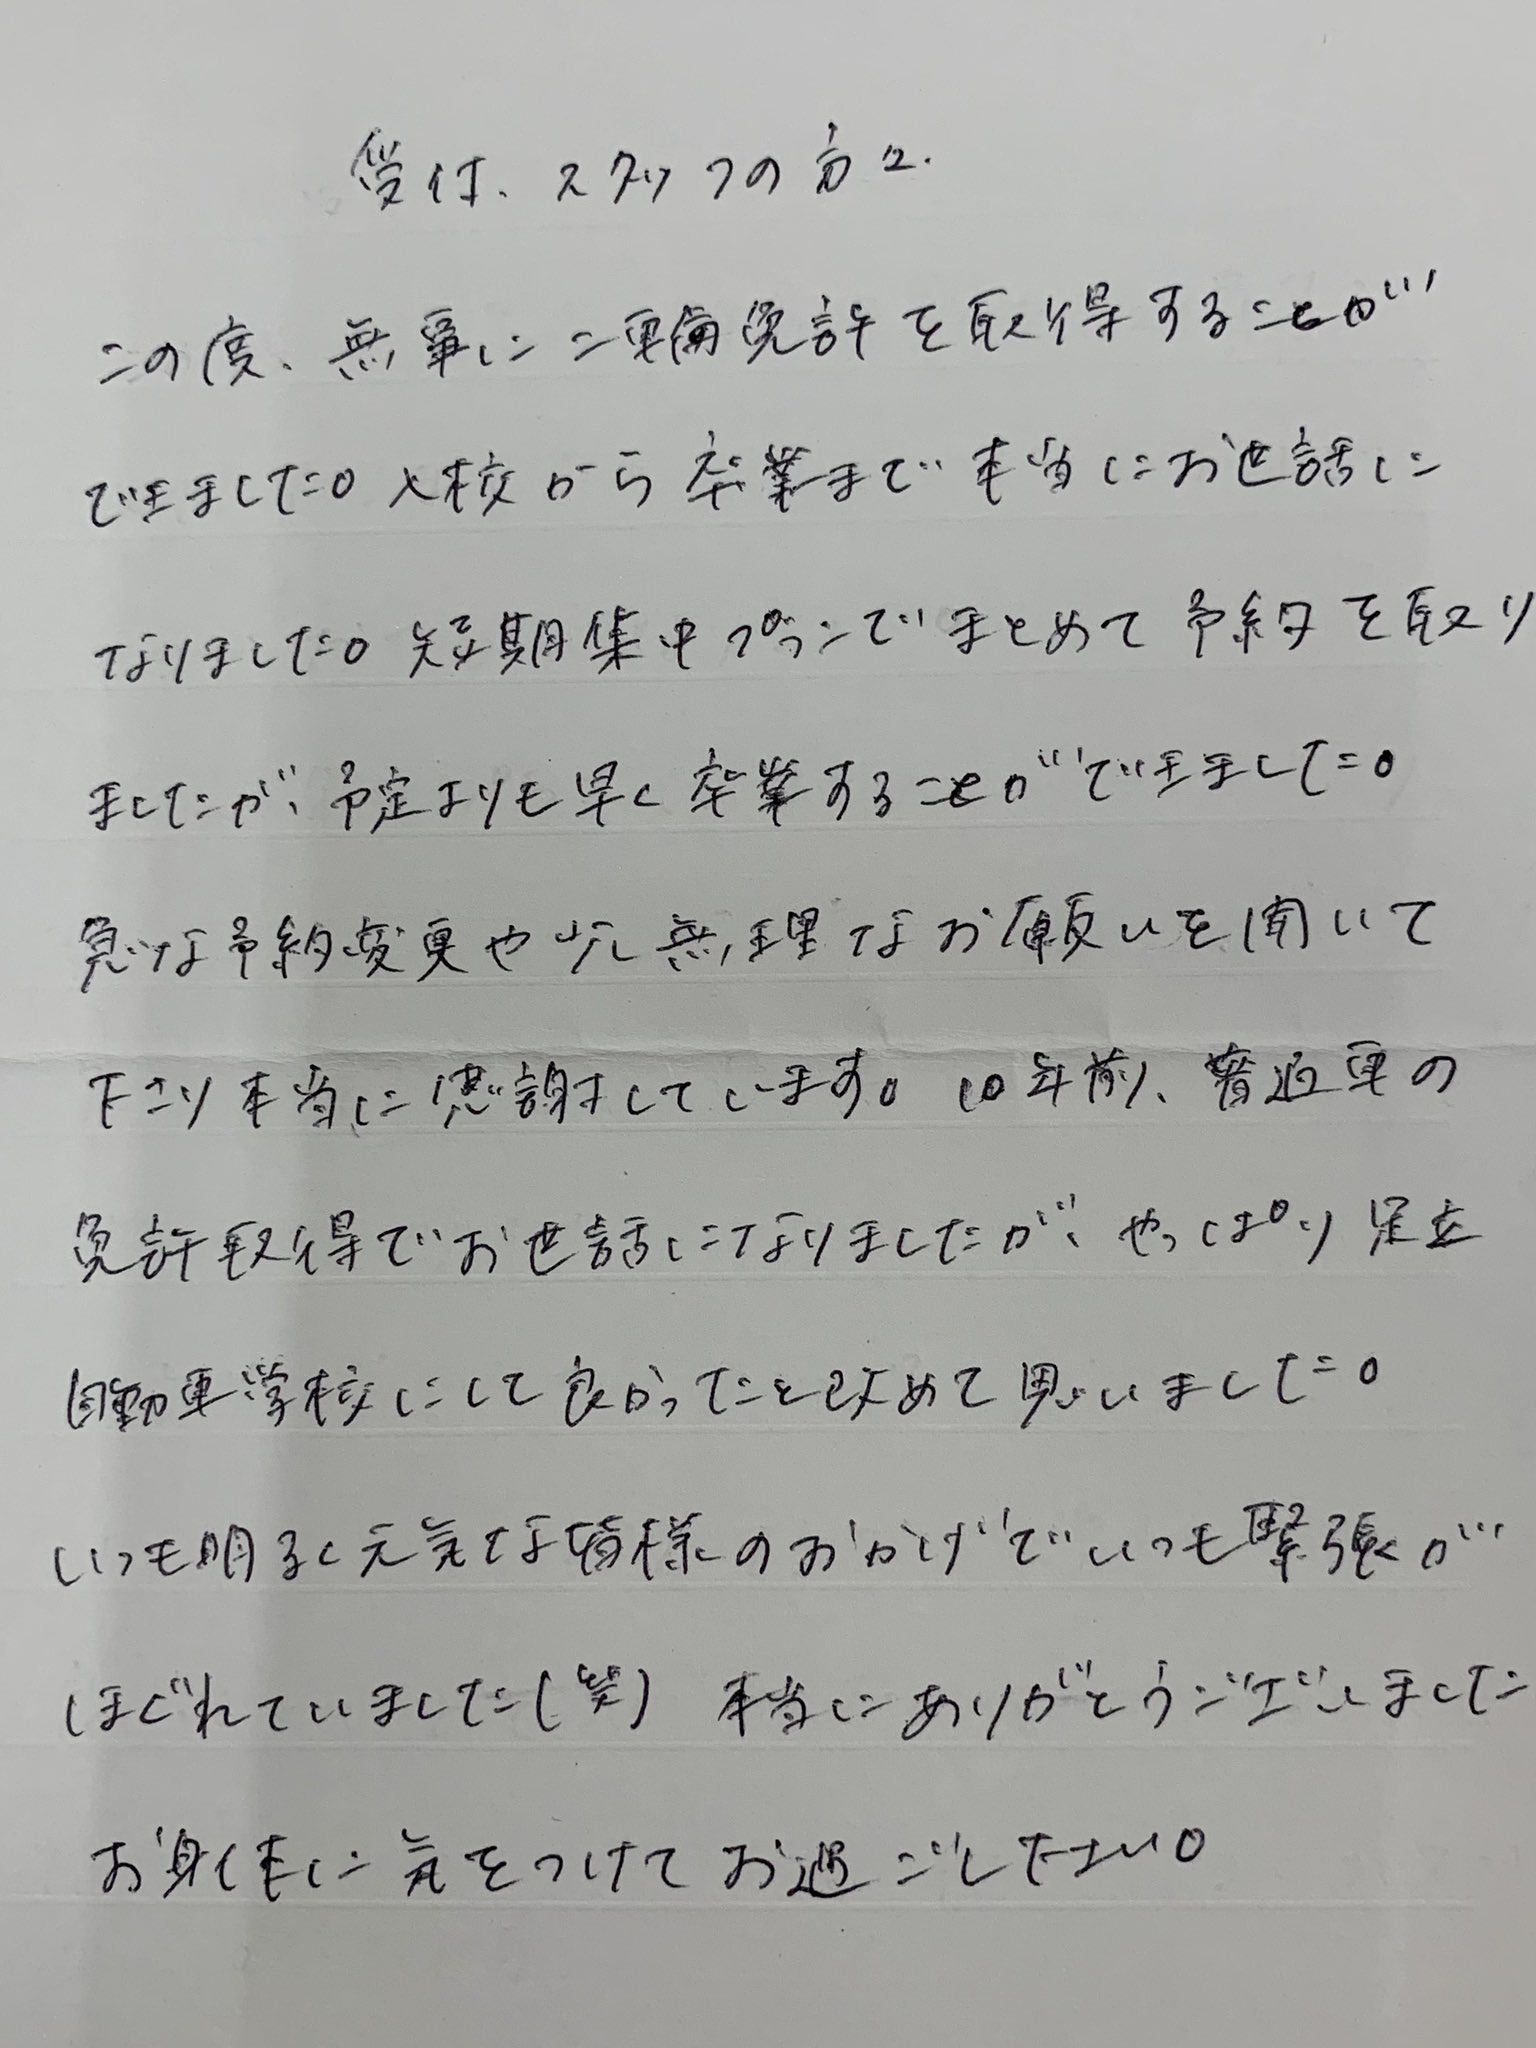 受付、スタッフの方々.
この度、無事に二輪免許を取得することが
できました。入校から卒業まで本当にお世話に
なりました。短期集中プランでまとめて予約を取り
ましたが、予定よりも早く卒業することができました。
急な予約変更や少し無理なお願いを聞いて
下さり本当に感謝しています。10年前、普通車の
免許取得でお世話になりましたが、やっぱり足立
自動車学校にして良かったと改めて思いました。
いつも明るく元気な皆様のおかげでいつも緊張が
ほぐれていました(笑) 本当にありがとうございました
お身体に気をつけてお過ごし下さい。